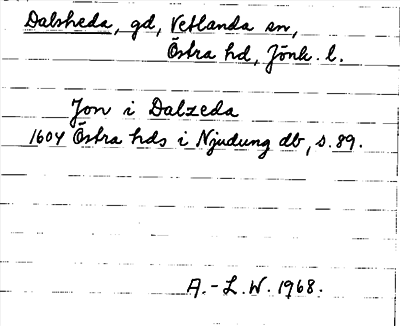 Dalsheda, gd, Vetlanda sn,
Östra hd, Jönk. l.
Jon i Dalzeda
1604 Östra hds i Njudung db, s. 89.
A.-L. W. 1968.